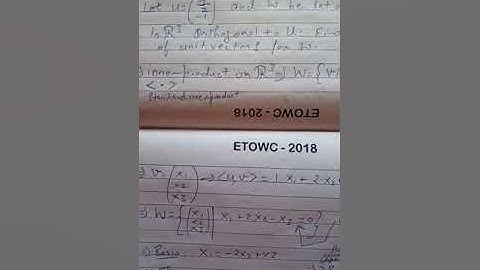 Let u = (1 2 -1) and W be set o
in ℝ³ orthogonal to u. Find
of unit vectors for W.
inner product on ℝ³ ⇒ W = {v
< · >
standard inner product
ETOWC - 2018
ETOWC - 2018
⇒ v = (x₁ x₂ x₃) → <u,v> = 1 x₁ + 2 x₂
⇒ W = {(x₁ x₂ x₃) | x₁ + 2 x₂ - x₃ = 0}
⇒ Basis: x₁ = -2x₂ + x₃